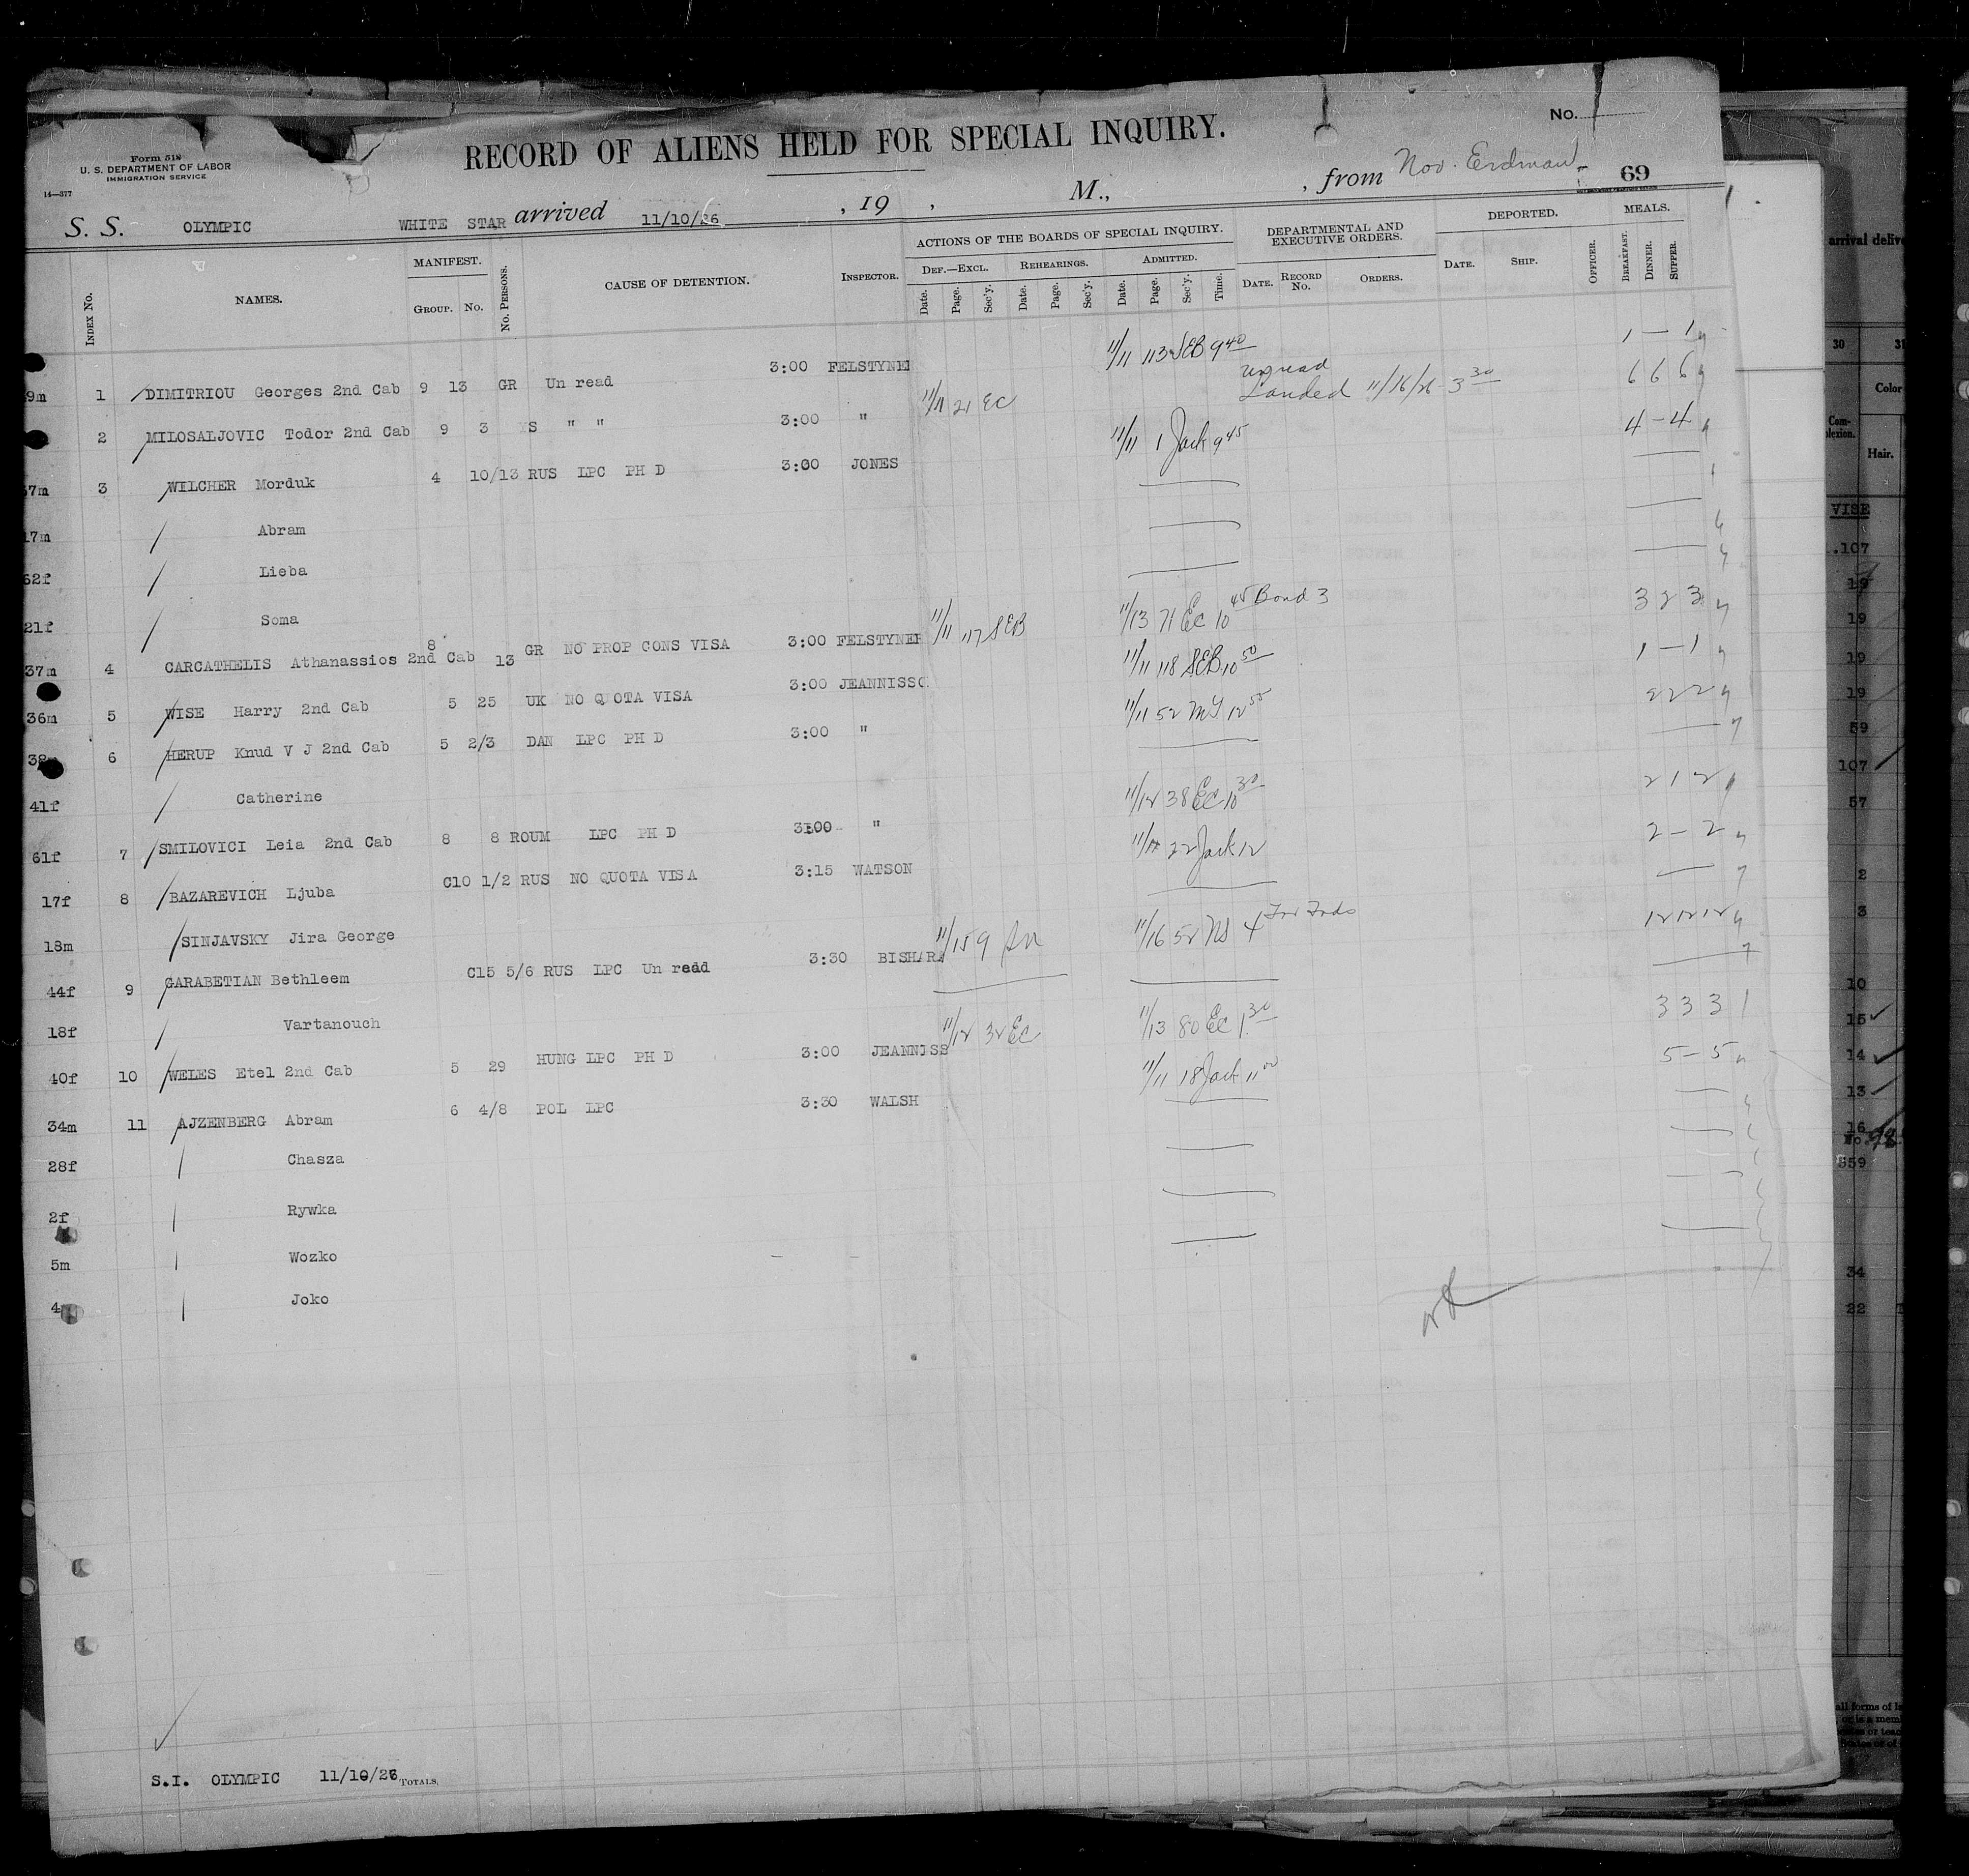 No.
RECORD OF ALIENS HELD FOR SPECIAL INQUIRY.
Form 518
U. S. DEPARTMENT OF LABOR
IMMIGRATION SERVICE
14—377
S. S. OLYMPIC WHITE STAR arrived 11/10/26 , 19 , M., , from Nov. Erdman 69
INDEX NO. NAMES. MANIFEST. GROUP. NO. NO. PERSONS. CAUSE OF DETENTION. INSPECTOR. ACTIONS OF THE BOARDS OF SPECIAL INQUIRY. DEF.—EXCL. Date. Page. Sec'y. REHEARINGS. Date. Page. Sec'y. ADMITTED. Date. Page. Sec'y. Time. DEPARTMENTAL AND EXECUTIVE ORDERS. DATE. RECORD NO. ORDERS. DEPORTED. DATE. SHIP. OFFICER. MEALS. BREAKFAST. DINNER. SUPPER.
9m 1 DIMITRIOU Georges 2nd Cab 9 13 GR Un read 3:00 FELSTYNE 11/11 113 SEB 9 40 1 — 1
2 MILOSALJOVIC Todor 2nd Cab 9 3 YS " " 3:00 " 11/11 21 EC Landed 11/16/26 3 30 6 6 6
37m 3 WILCHER Morduk 4 10/13 RUS LPC PH D 3:00 JONES 11/11 1 Jack 9 45 4 – 4
17m Abram
52f Lieba
21f Soma
37m 4 CARCATHELIS Athanassios 2nd Cab 8 13 GR NO PROP CONS VISA 3:00 FELSTYNER 11/11 117 SEB 11/13 71 EC 10 45 Bond 3 3 2 3
36m 5 WISE Harry 2nd Cab 5 25 UK NO QUOTA VISA 3:00 JEANNISSO 11/11 118 SEB 10 50 1 – 1
38m 6 HERUP Knud V J 2nd Cab 5 2/3 DAN LPC PH D 3:00 " 11/11 52 12 55 2 2 2
41f Catherine
61f 7 SMILOVICI Leia 2nd Cab 8 8 ROUM LPC PH D 3:00 " 11/12 38 EC 10 30 2 1 2
17f 8 BAZAREVICH Ljuba C10 1/2 RUS NO QUOTA VISA 3:15 WATSON 22 Jack 12 2 – 2
18m SINJAVSKY Jira George
44f 9 GARABETIAN Bethleem C15 5/6 RUS LPC Un read 3:30 BISHARA 11/15 9 11/16 52 4 12 12 12
18f Vartanouch
40f 10 WELES Etel 2nd Cab 5 29 HUNG LPC PH D 3:00 JEANNISS 11/12 32 EC 11/13 80 EC 1 30 3 3 3
34m 11 AJZENBERG Abram 6 4/8 POL LPC 3:30 WALSH 11/11 18 Jack 11 00 5 – 5
28f Chasza
2f Rywka
5m Wozko
4 Joko
S.I. OLYMPIC 11/10/26 TOTALS,
arrival delive
30 31
Color
Complexion.
Hair.
VISE
.107
19
19
19
19
59
107
57
2
3
10
15
14
13
16
No 98
559
34
22
all forms of